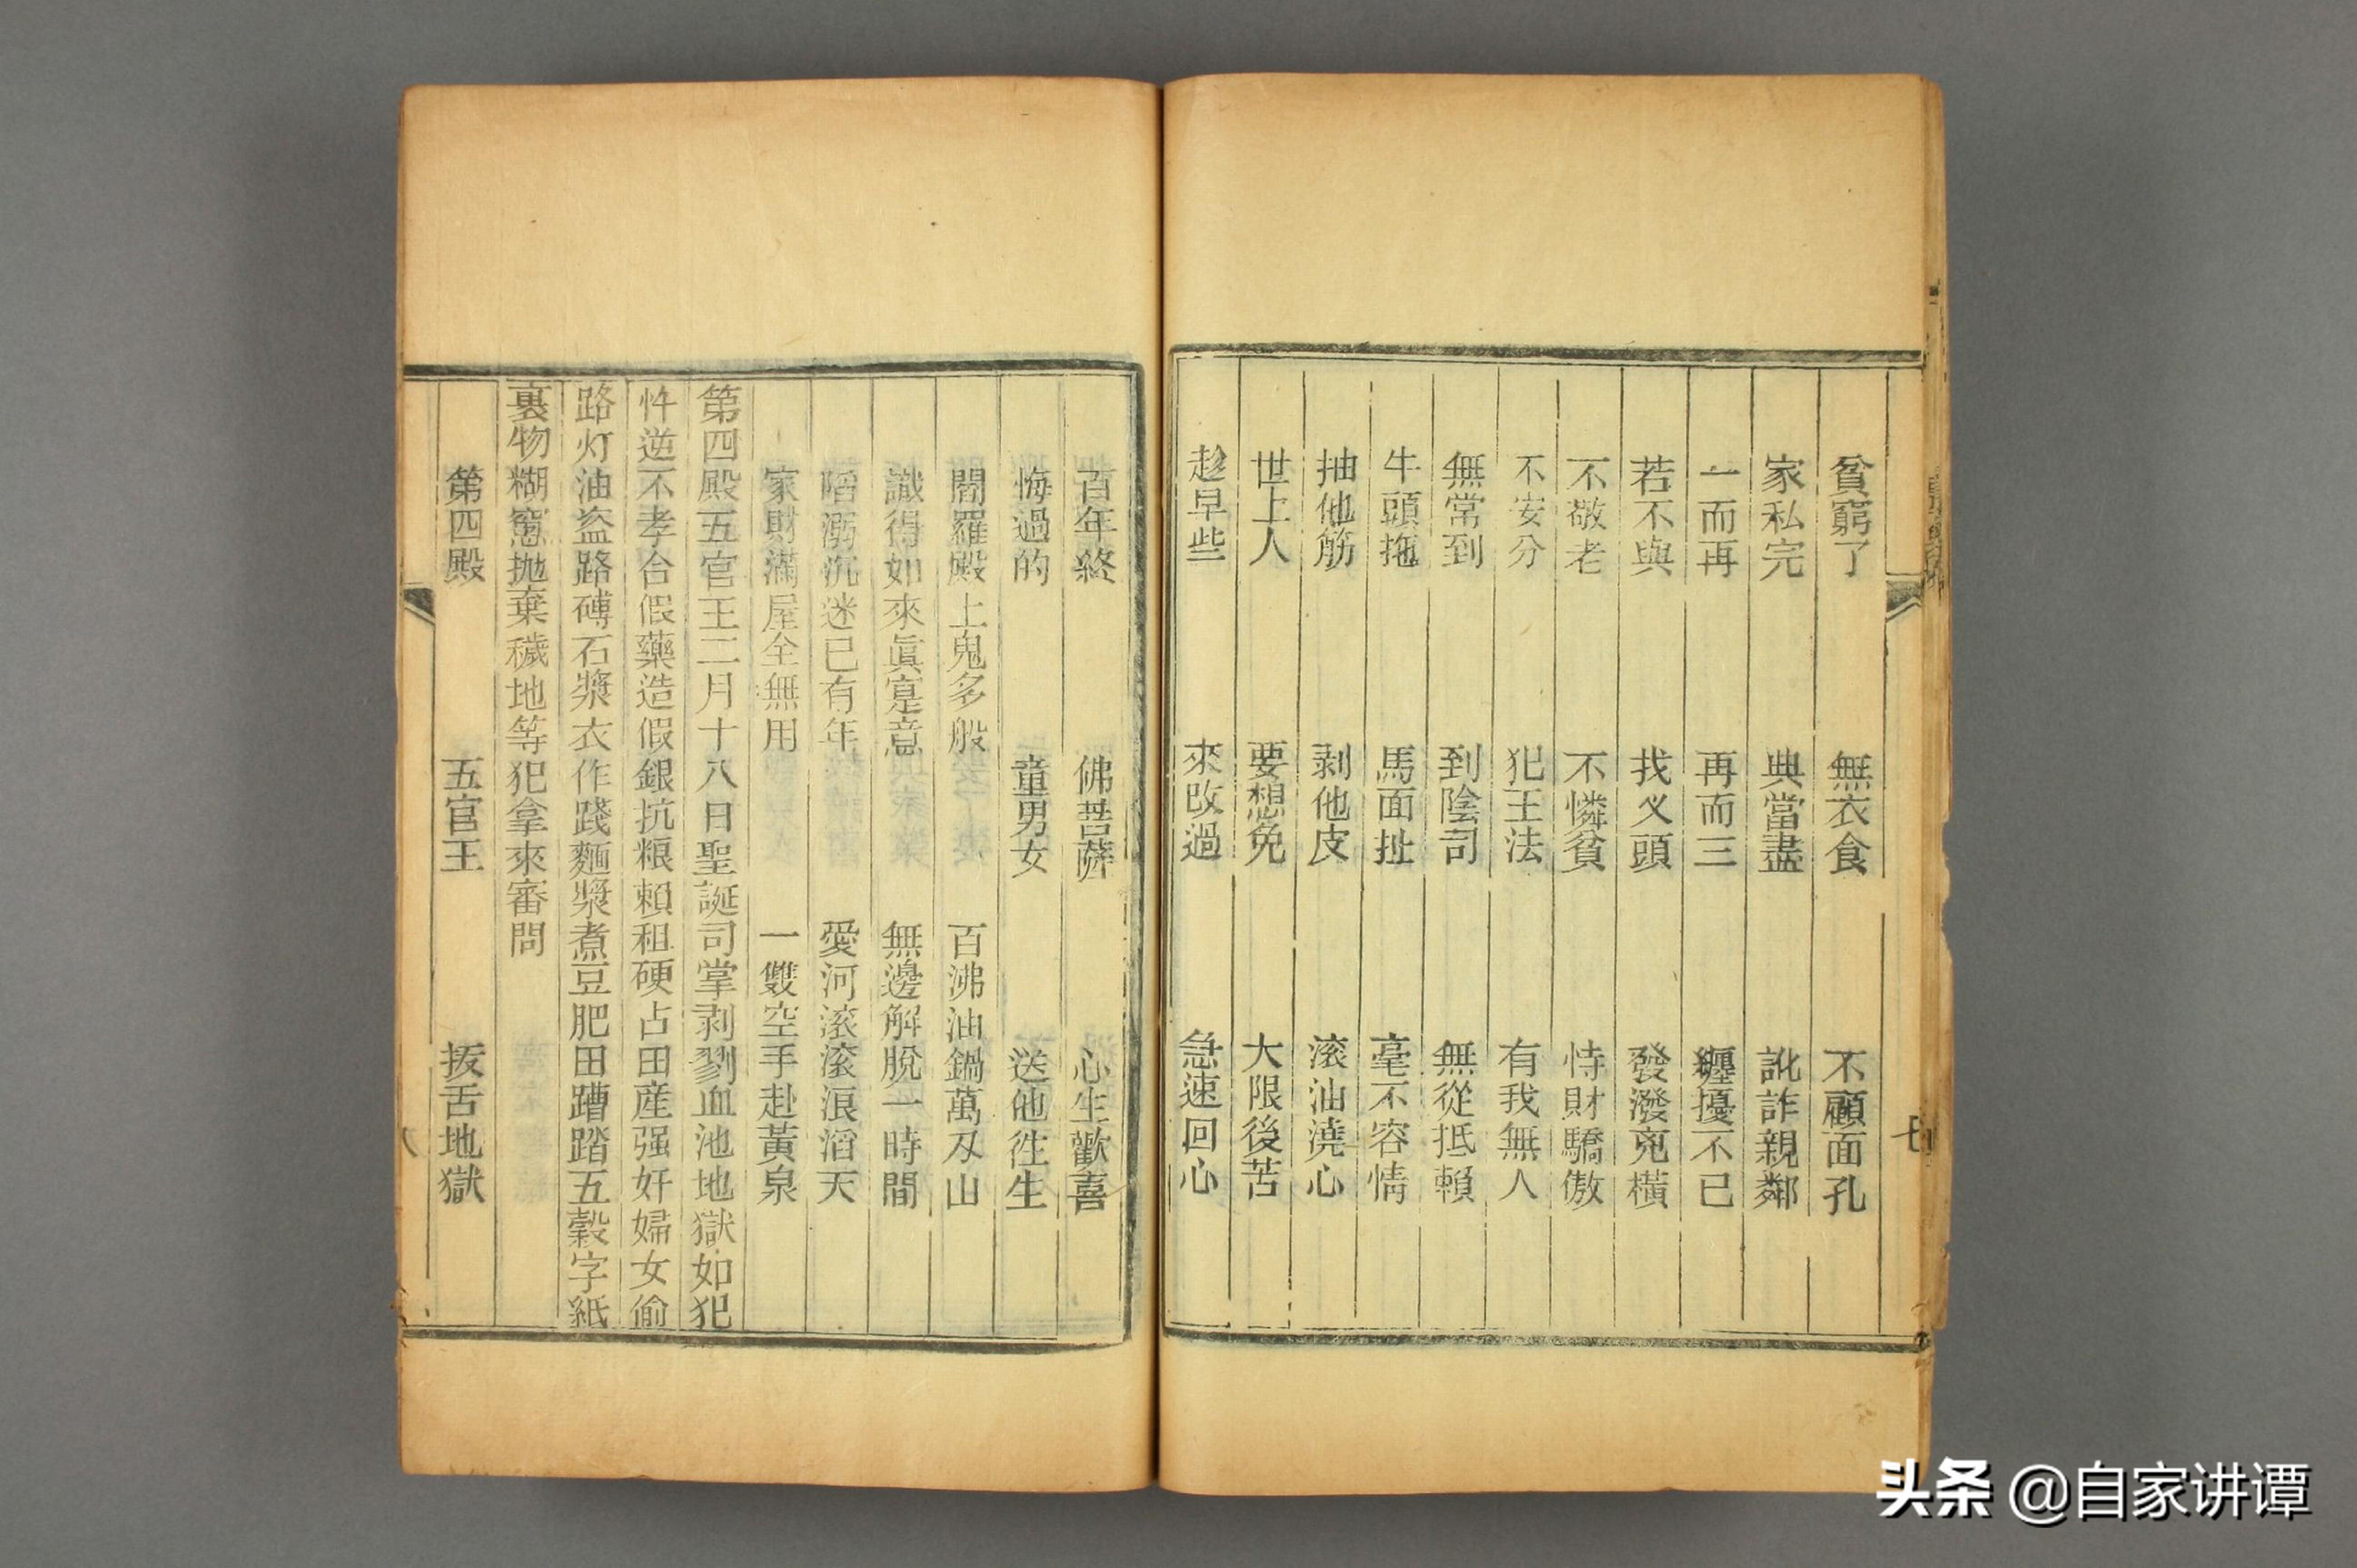 貧窮了 無衣食 不顧面孔
家私完 典當盡 訛詐親鄰
一而再 再而三 纏擾不已
若不與 找义頭 發潑兇橫
不敬老 不憐貧 恃財驕傲
不安分 犯王法 有我無人
無常到 到陰司 無從抵賴
牛頭拖 馬面扯 毫不容情
抽他筋 剥他皮 滚油澆心
世上人 要想免 大限後苦
趁早些 來改過 急速回心
七
百年終 佛菩薩 心生歡喜
悔過的 童男女 送他徃生
閻羅殿上鬼多般 百沸油鍋萬刄山
識得如來眞寔意 無邊解脫一時間
陷溺沉迷已有年 愛河滚滚浪滔天
家財滿屋全無用 一雙空手赴黃泉
第四殿五官王二月十八日聖誕司掌剥剹血池地獄如犯
忤逆不孝合假藥造假銀抗粮賴租硬占田産强奸婦女偷
路灯油盗路磚石漿衣作踐麵漿煮豆肥田蹧踏五穀字紙
裏物糊窻抛棄穢地等犯拿來審問
第四殿 五官王 抜舌地獄
八
头条 @自家讲谭